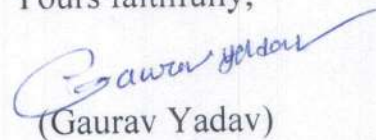 Yours faithfully,
Gaurav Yadav
(Gaurav Yadav)